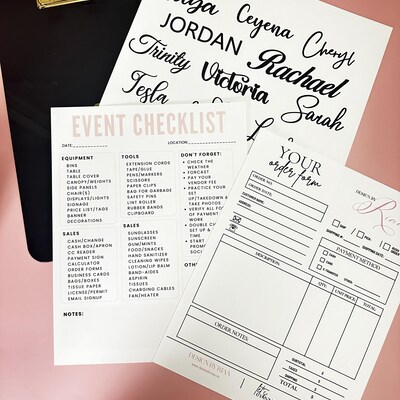 Ceyena
Cheryl
JORDAN
Trinity
Victoria
Rachael
Tesla
Sarah
EVENT CHECKLIST
DATE:
LOCATION:
EQUIPMENT
BINS
TABLE
TABLE COVER
CANOPY/WEIGHTS
SIDE PANELS
CHAIR(S)
DISPLAYS/LIGHTS
SIGNAGE
PRICE LIST/TAGS
BANNER
DECORATIONS
TOOLS
EXTENSION CORDS
TAPE/GLUE
PENS/MARKERS
SCISSORS
PAPER CLIPS
BAG FOR GARBAGE
SAFETY PINS
LINT ROLLER
RUBBER BANDS
CLIPBOARD
DON'T FORGET:
• CHECK THE WEATHER
• FORCAST
• PAY YOUR VENDOR FEE
• PRACTICE YOUR SET
UP/TAKEDOWN &
TAKE PHOTOS
• VERIFY ALL FORMS
OF PAYMENT
WORK
• DOUBLE
SET UP &
TIME
• START
SOCIAL
SALES
CASH/CHANGE
CASH BOX/APRON
CC READER
PAYMENT SIGN
CALCULATOR
ORDER FORMS
BUSINESS CARDS
BAGS/BOXES
TISSUE PAPER
LICENSE/PERMIT
EMAIL SIGNUP
SALES
SUNGLASSES
SUNSCREEN
GUM/MINTS
FOOD/SNACKS
HAND SANITIZER
CLEANING WIPES
LOTION/LIP BALM
BAND-AIDS
ASPIRIN
TISSUES
CHARGING CABLES
FAN/HEATER
NOTES:
YOUR
order form
DESIGN BY
ORDER NO.
ORDER DATE:
CUSTOMER NAME:
SHIP
PICK
SHIPPING #:
PAYMENT METHOD
CASH
CARD
DESCRIPTION:
QTY:
UNIT PRICE
TOTAL
ORDER NOTES:
SUBTOTAL $
TAXES $
SHIPPING $
TOTAL $
DESIGN BY REVA